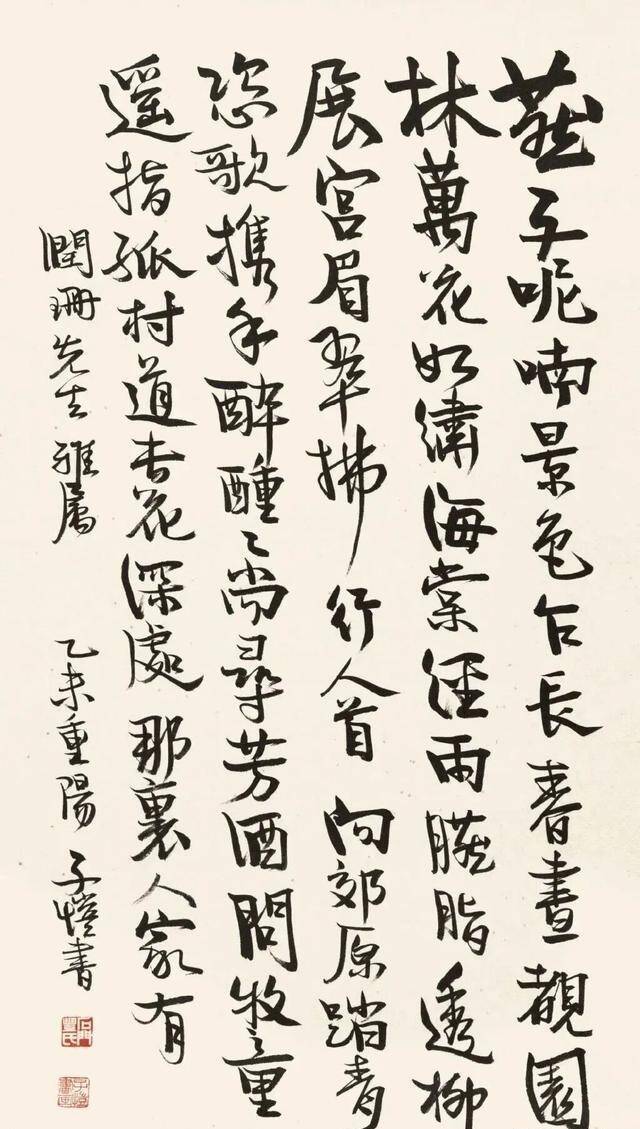 燕子呢喃景色乍長春晝覩園
林萬花如繡海棠經雨臙脂透柳
展宮眉翠拂行人首向郊原踏青
恣歌携手醉醺〻尚尋芳酒問牧童
遥指孤村道杏花深處那裏人家有
潤珊先生雅屬
乙未重陽子愷書
石門豐氏
子愷書画